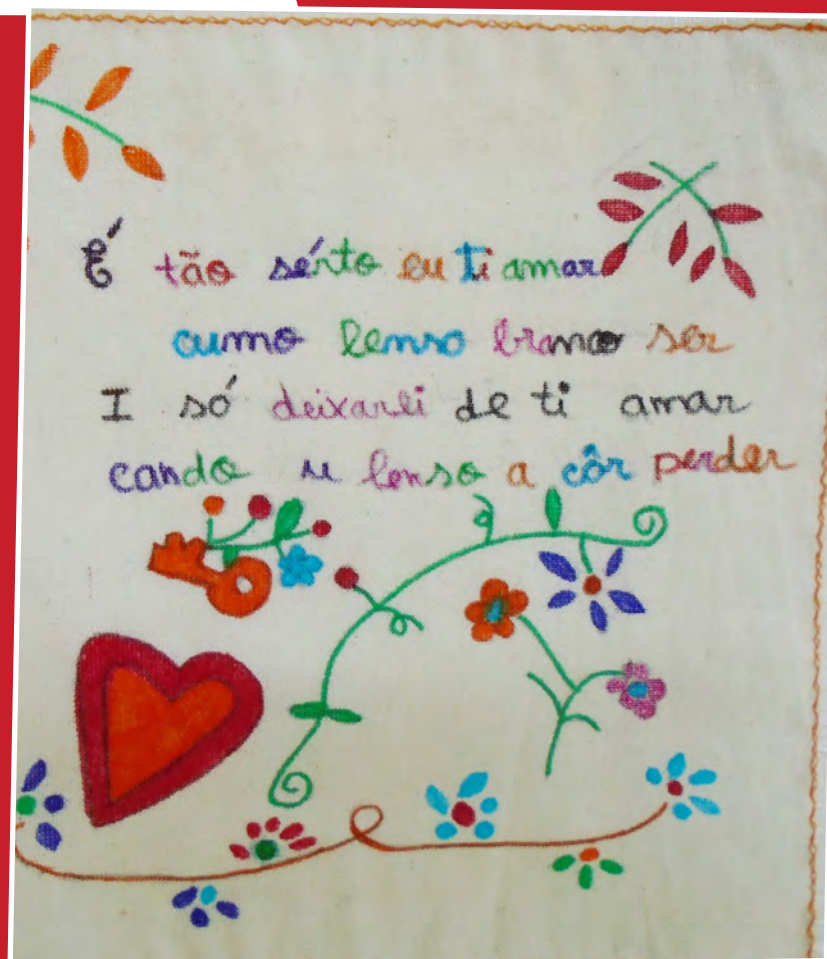 É tão sérto eu ti amar
cumo lenso branco ser
I só deixarei de ti amar
cando u lenso a côr perder